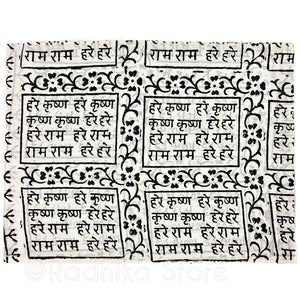 राम राम हरे हरे
राम राम हरे हरे
हरे कृष्ण हरे कृष्ण
कृष्ण कृष्ण हरे हरे
हरे राम हरे राम
राम राम हरे हरे
हरे कृष्ण हरे कृष्ण
कृष्ण कृष्ण हरे हरे
हरे राम हरे राम
राम राम हरे हरे
हरे कृष्ण हरे कृष्ण
कृष्ण कृष्ण हरे हरे
हरे राम हरे राम
राम राम हरे हरे
हरे कृष्ण हरे कृष्ण
कृष्ण कृष्ण हरे हरे
हरे राम हरे राम
राम राम हरे हरे
© Radhika Store